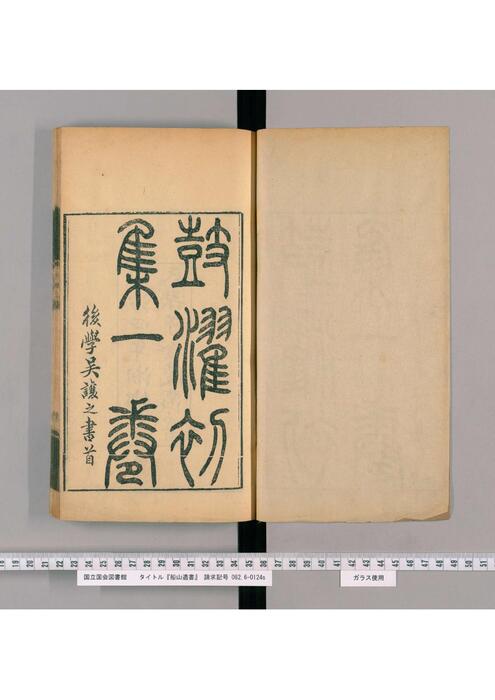 鼓濯初
集一卷
後學吳讓之書首
18 19 20 21 22 23 24 25 26 27 28 29 30 31 32 33 34 35 36 37 38 39 40 41 42 43 44 45 46 47 48 49 50 51
国立国会図書館 タイトル『船山遺書』 請求記号 082.6-0124s
ガラス使用